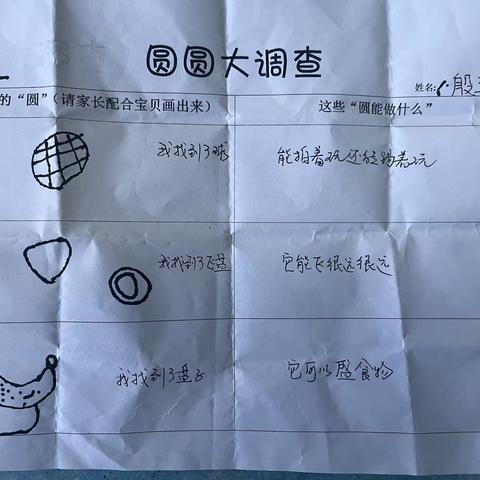 圆圆大调查
姓名:
的“圆”(请家长配合宝贝画出来)
这些“圆能做什么”
我找到了球
能拍着玩还能扬着玩
我找到了飞盘
它能飞很远很远
我找到了盘子
它可以盛食物